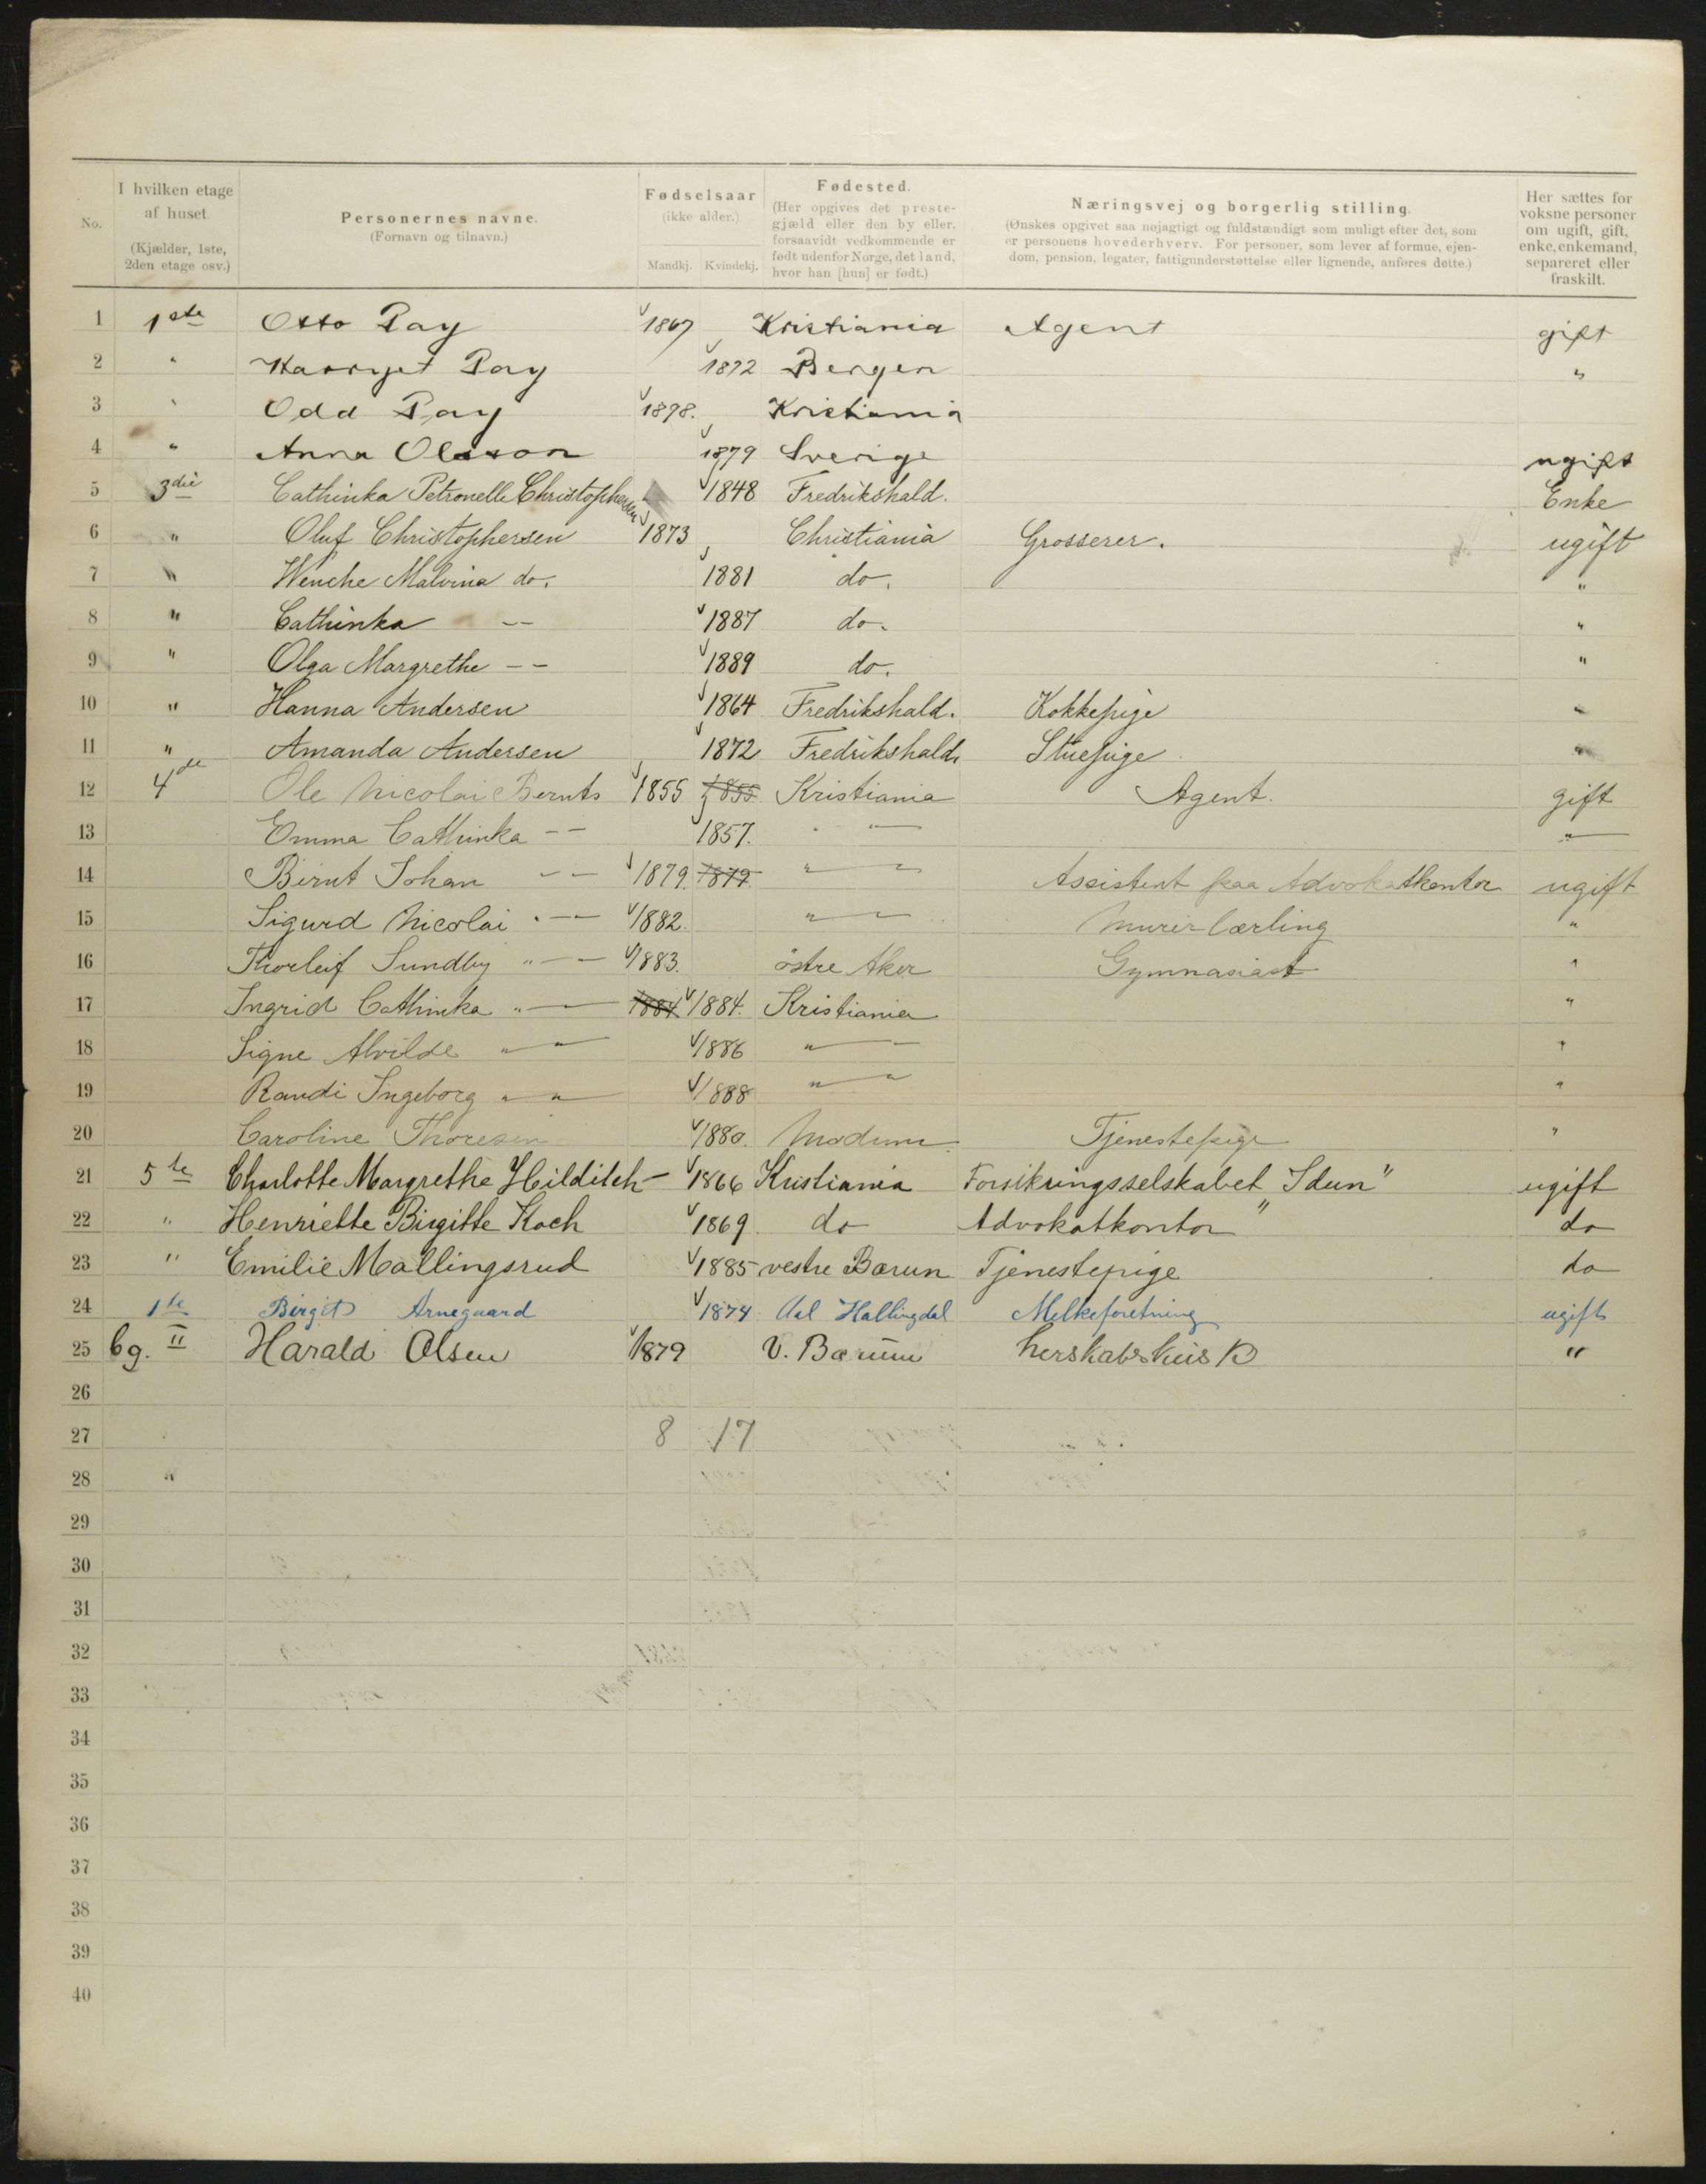 No.
I hvilken etage af huset. (Kjælder, 1ste, 2den etage osv.)
Personernes navne. (Fornavn og tilnavn.)
Fødselsaar (ikke alder.) Mandkj. Kvindekj.
Fødested. (Her opgives det prestegjæld eller den by eller, forsaavidt vedkommende er født udenfor Norge, det land, hvor han [hun] er født.)
Næringsvej og borgerlig stilling. (Ønskes opgivet saa nøjagtigt og fuldstændigt som muligt efter det, som er personens hovederhverv. For personer, som lever af formue, ejendom, pension, legater, fattigunderstøttelse eller lignende, anføres dette.)
Her sættes for voksne personer om ugift, gift, enke, enkemand, separeret eller fraskilt.
1 1ste Otto Pay 1867 Kristiania Agent gift
2 " Pay 1872 Bergen "
3 " Odd Pay 1898. Kristiania
4 " Anna Olsson 1879 Sverige ugift
5 3die Cathinka Petronelle Christophersen 1848 Fredrikshald. Enke
6 " Oluf Christophersen 1873 Christiania Grosserer. ugift
7 " Wenche Malvina do. 1881 do. "
8 " Cathinka -- 1887 do. "
9 " Olga Margrethe -- 1889 do. "
10 " Hanna Andersen 1864 Fredrikshald. Kokkepige "
11 " Amanda Andersen 1872 Fredrikshald. Stuepige "
12 4de Ole Nicolai Bernts 1855 1855 Kristiania Agent. gift
13 Emma Cathinka -- 1857. " — "
14 Bernt Johan -- 1879. 1879. " " Assistent paa Advokatkontor ugift
15 Sigurd Nicolai " — 1882. " " Murerlærling "
16 Thorleif Sundby " — 1883. østre Aker Gymnasiast "
17 Ingrid Cathinka " — 1884 1884. Kristiania "
18 Signe Alvilde " " 1886 " — "
19 Randi Ingeborg " " 1888 " " "
20 Caroline Thoresen 1880. Modum. Tjenestepige "
21 5te Charlotte Margrethe Hilditch - 1866 Kristiania Forsikringsselskabet "Idun" ugift
22 " Henriette Birgitte Koch 1869 do Advokatkontor do
23 " Emilie Mallingsrud 1885 vestre Bærum Tjenestepige do
24 1ste Birgit Arnegaard 1874 Aal Hallingdal Melkeforetning ugift
25 bg. II Harald Olsen 1879 V. Bærum herskabskusk "
26
27 8 17
28 "
29
30
31
32
33
34
35
36
37
38
39
40